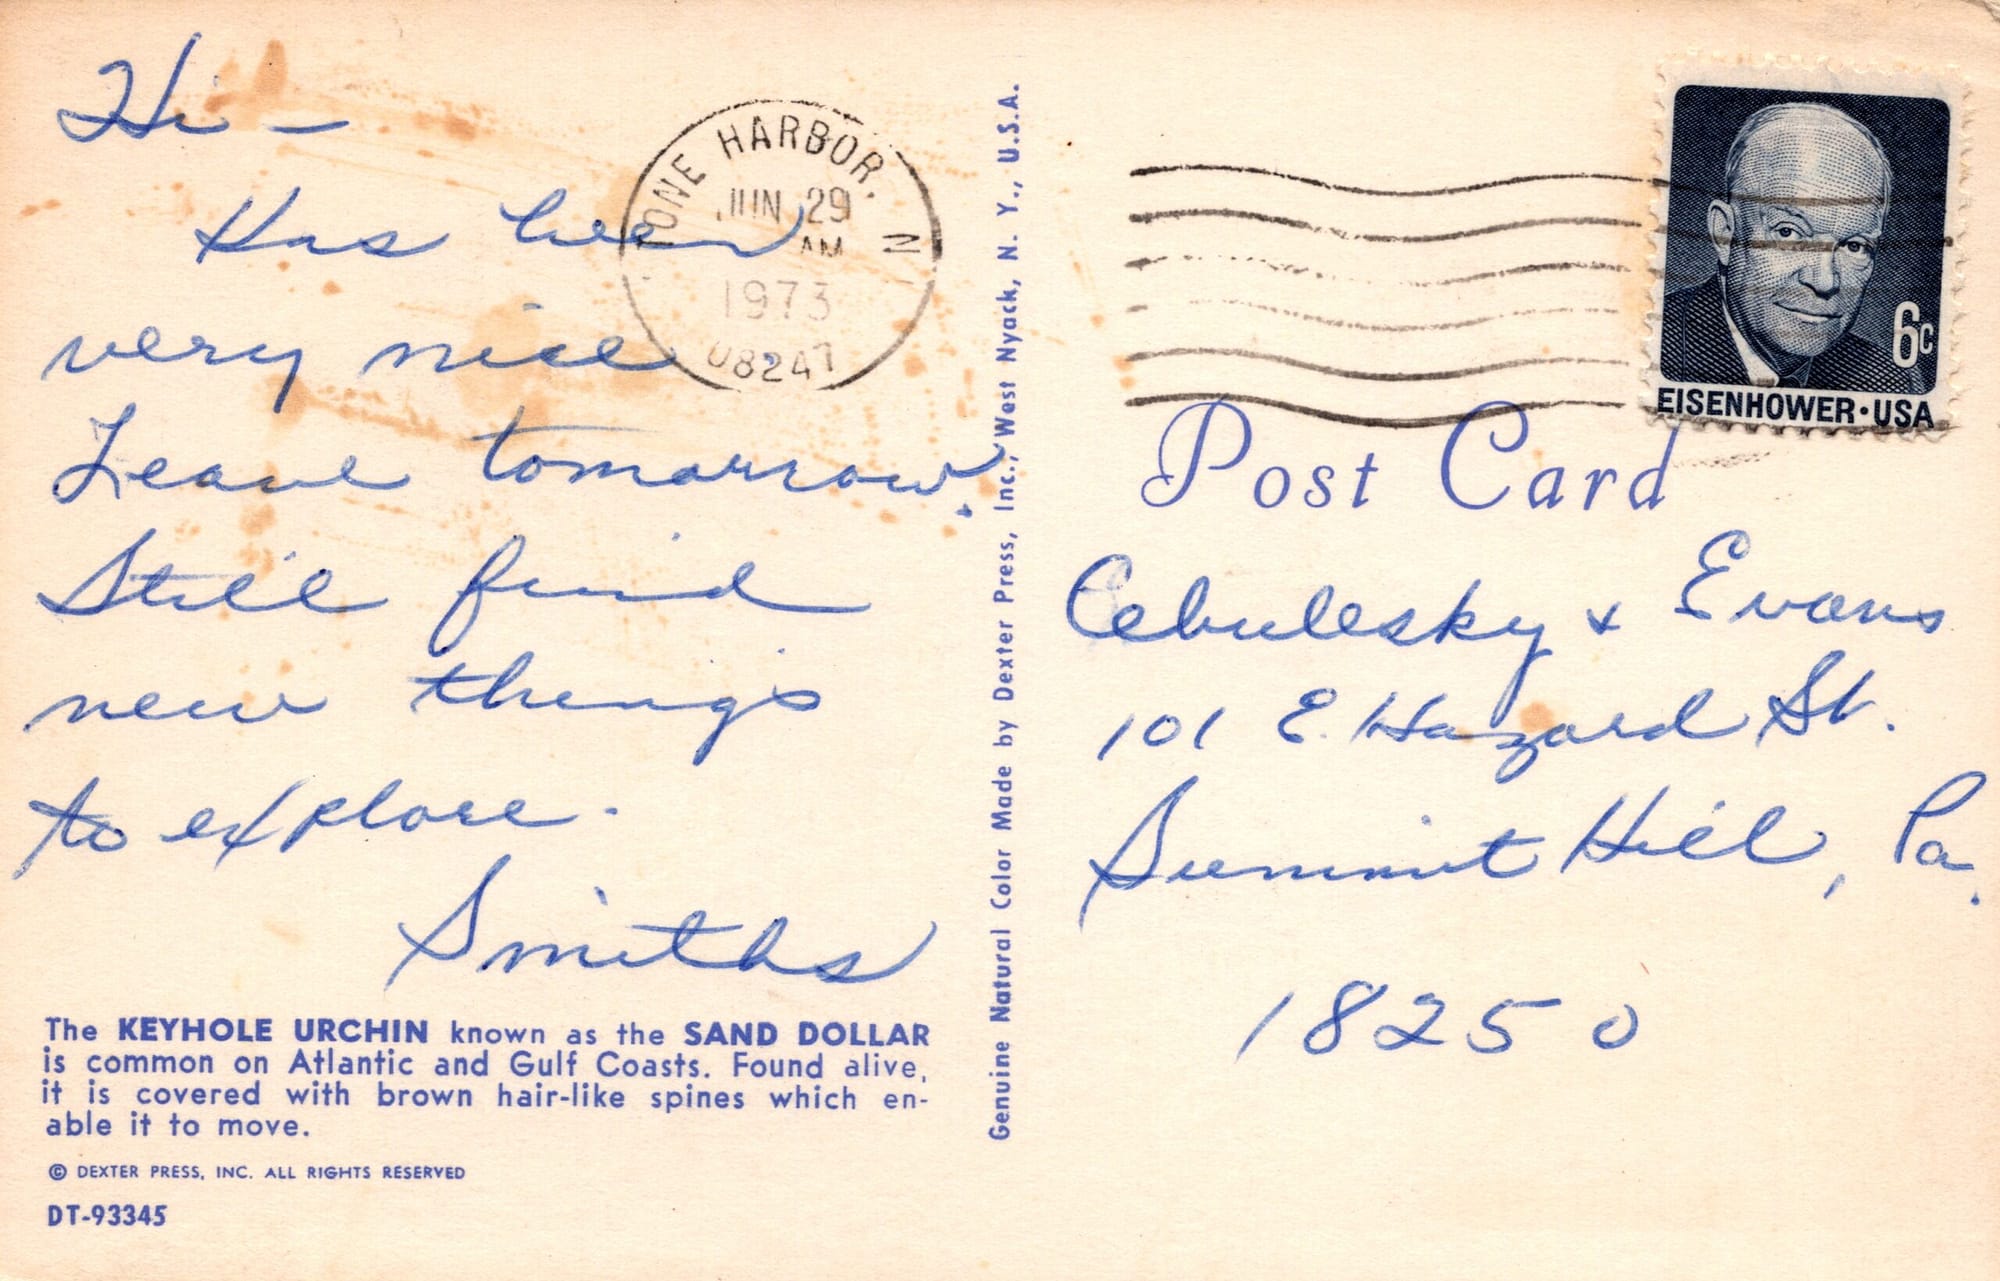 Hi —
Has been
very nice
Leave tomorrow.
Still find
new things
to explore.
Smiths
The KEYHOLE URCHIN known as the SAND DOLLAR
is common on Atlantic and Gulf Coasts. Found alive,
it is covered with brown hair-like spines which en-
able it to move.
© DEXTER PRESS, INC. ALL RIGHTS RESERVED
DT-93345
Genuine Natural Color Made by Dexter Press, Inc., West Nyack, N. Y., U.S.A.
TONE HARBOR, N
JUN 29
AM
1973
08247
6c
EISENHOWER·USA
Post Card
Cebulesky & Evans
101 E. Hazard St.
Summit Hill, Pa.
18250